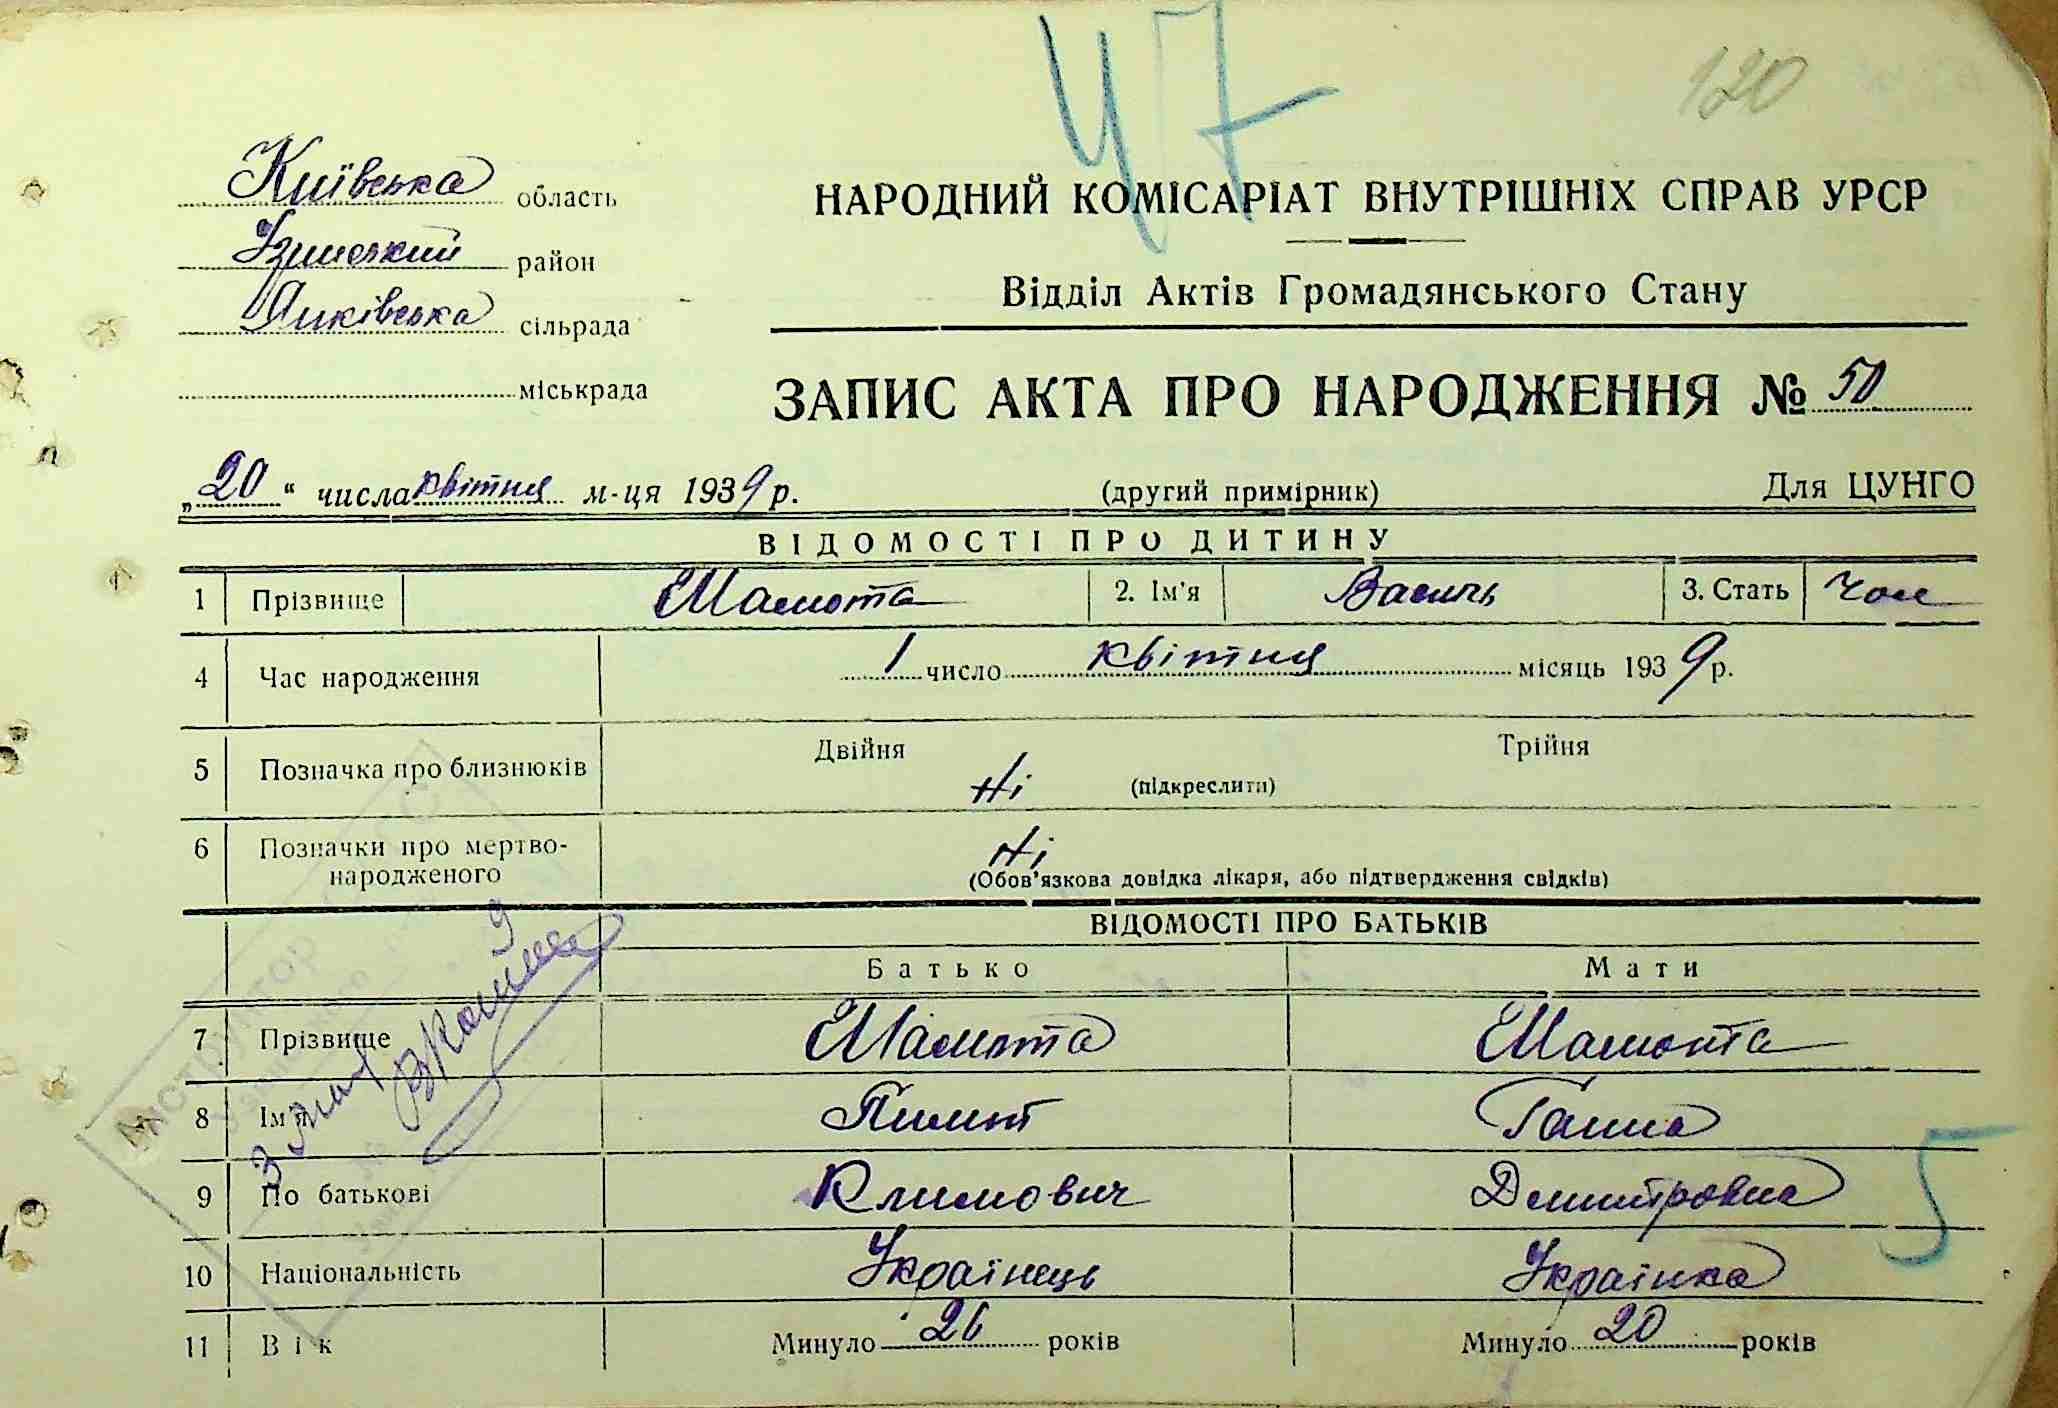 47
120
Київська область
Узинський район
Янківська сільрада
міськрада
НАРОДНИЙ КОМІСАРІАТ ВНУТРІШНІХ СПРАВ УРСР
Відділ Актів Громадянського Стану
ЗАПИС АКТА ПРО НАРОДЖЕННЯ № 50
„20“ числа квітня м-ця 1939 р. (другий примірник) Для ЦУНГО
ВІДОМОСТІ ПРО ДИТИНУ
1 Прізвище Шамота 2. Ім'я Василь 3. Стать Чол
4 Час народження 1 число квітня місяць 1939 р.
5 Позначка про близнюків Двійня Ні (підкреслити) Трійня
6 Позначки про мертво-
народженого Ні
(Обов'язкова довідка лікаря, або підтвердження свідків)
ВІДОМОСТІ ПРО БАТЬКІВ
Батько Мати
7 Прізвище Шамота Шамота
8 Ім'я Пилип Ганна
9 По батькові Климович Демитровна
10 Національність Українець Українка
11 Вік Минуло 26 років Минуло 20 років
5